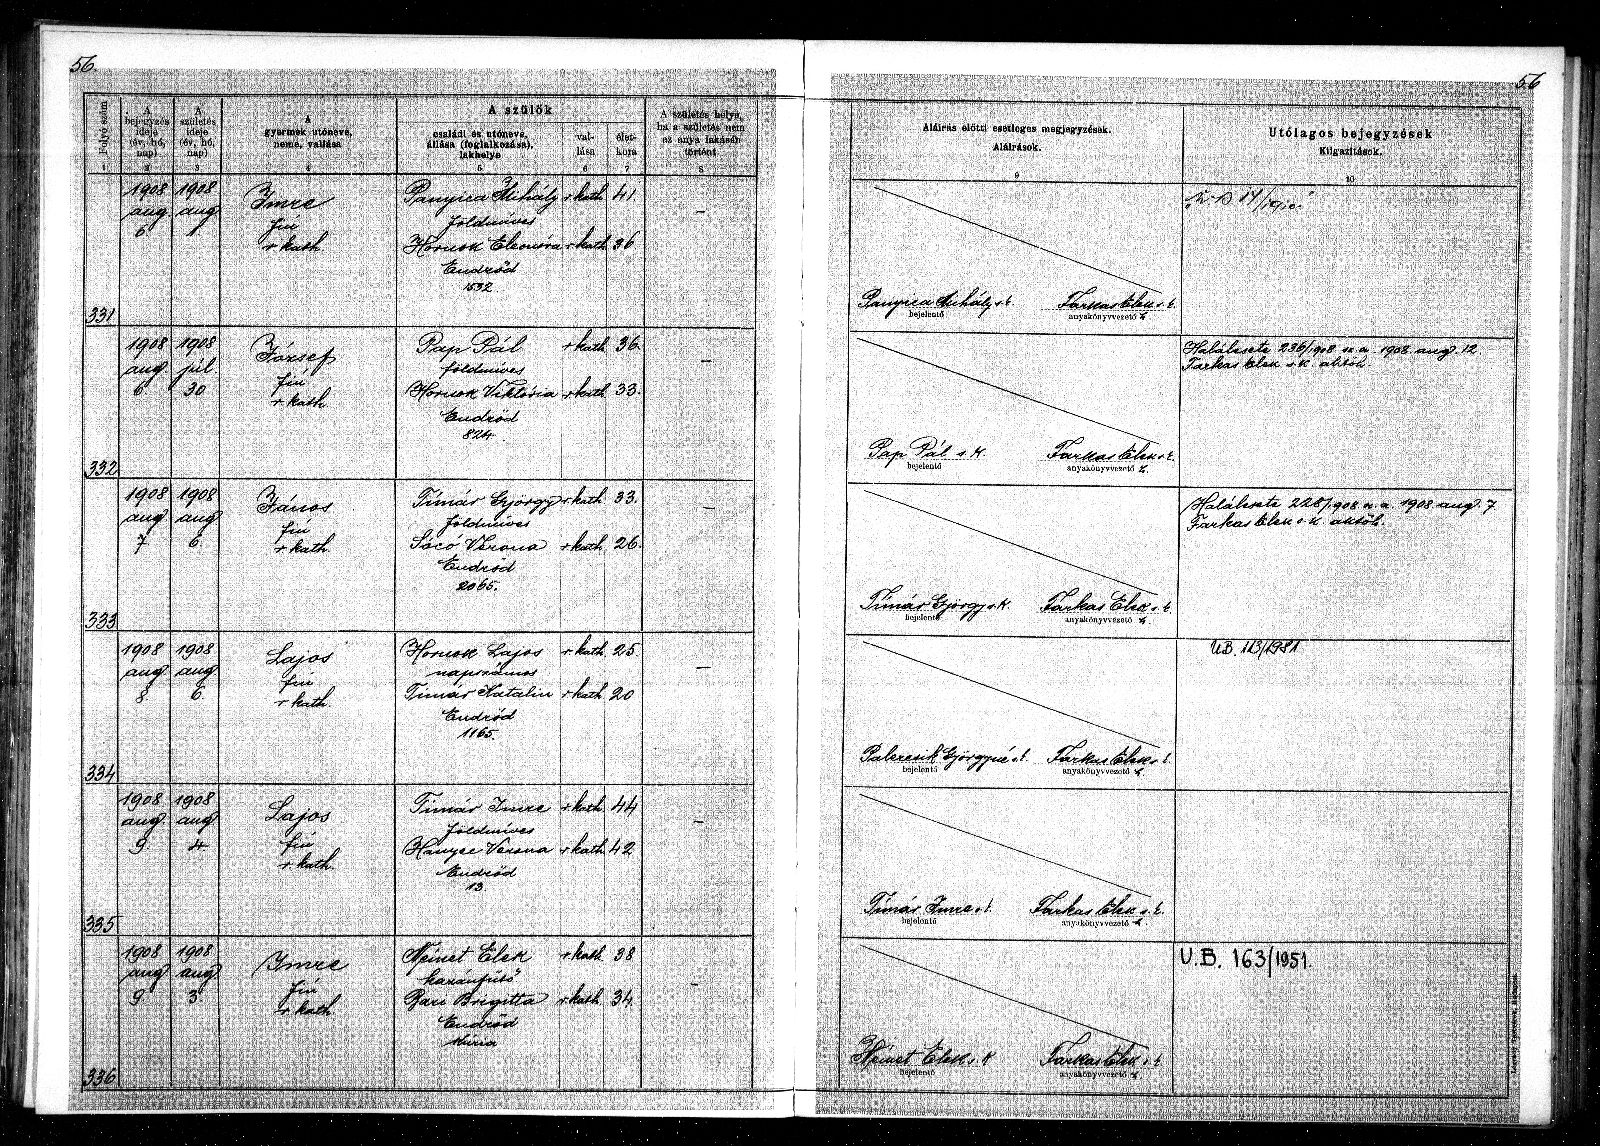 56.
56
Folyó szám
A bejegyzés ideje (év, hó, nap)
A születés ideje (év, hó, nap)
A gyermek utóneve, neme, vallása
A szülők
családi és utóneve, állása (foglalkozása), lakhelye
val-lása
élet-kora
A születés helye, ha a születés nem az anya lakásán történt
Aláírás előtti esetleges megjegyzések.
Aláírások.
Utólagos bejegyzések
Kiigazítások.
1 2 3 4 5 6 7 8 9 10
331
1908 aug 6
1908 aug 1
Imre
fiú
r. kath.
Panyica Mihály r. kath. 41.
földmíves
Hornok Eleonóra r. kath. 36
Endrőd
1532
–
Panyica Mihály s. k. Farkas Elek s. k.
bejelentő anyakönyvvezető
332
1908 aug 6
1908 júl. 30
József
fiú
r. kath.
Pap Pál r. kath. 36.
földmíves
Hornok Viktória r. kath. 33.
Endrőd
824.
–
Pap Pál s. k. Farkas Elek s. k.
bejelentő anyakönyvvezető
Halálesete 236/908 sz. a. 1908. aug. 12.
Farkas Elek s. k. aktóh.
333
1908 aug 7
1908 aug 6
János
fiú
r. kath.
Tímár György r. kath. 33.
földmíves
Sócó Verona r. kath. 26.
Endrőd
2065.
–
Tímár György s. k. Farkas Elek s. k.
bejelentő anyakönyvvezető
Halálesete 228/908 sz. a. 1908. aug. 7
Farkas Elek s. k. aktóh.
334
1908 aug 8
1908 aug 6
Lajos
fiú
r. kath.
Hornok Lajos r. kath. 25
napszámos
Tímár Katalin r. kath. 20
Endrőd
1165.
–
Györgyné s. k. Farkas Elek s. k.
bejelentő anyakönyvvezető
U.B. 113/1981
335
1908 aug. 9
1908 aug 4
Lajos
fiú
r. kath.
Tímár Imre r. kath. 44
földmíves
Hanyec Verona r. kath. 42
Endrőd
13.
–
Tímár Imre s. k. Farkas Elek s. k.
bejelentő anyakönyvvezető
336
1908 aug 9
1908 aug 3
Imre
fiú
r. kath.
Német Elek r. kath. 38
kazánfűtő
Brigitta r. kath. 34.
Endrőd
–
Német Elek s. k. Farkas Elek s. k.
bejelentő anyakönyvvezető
U.B. 163/1951.